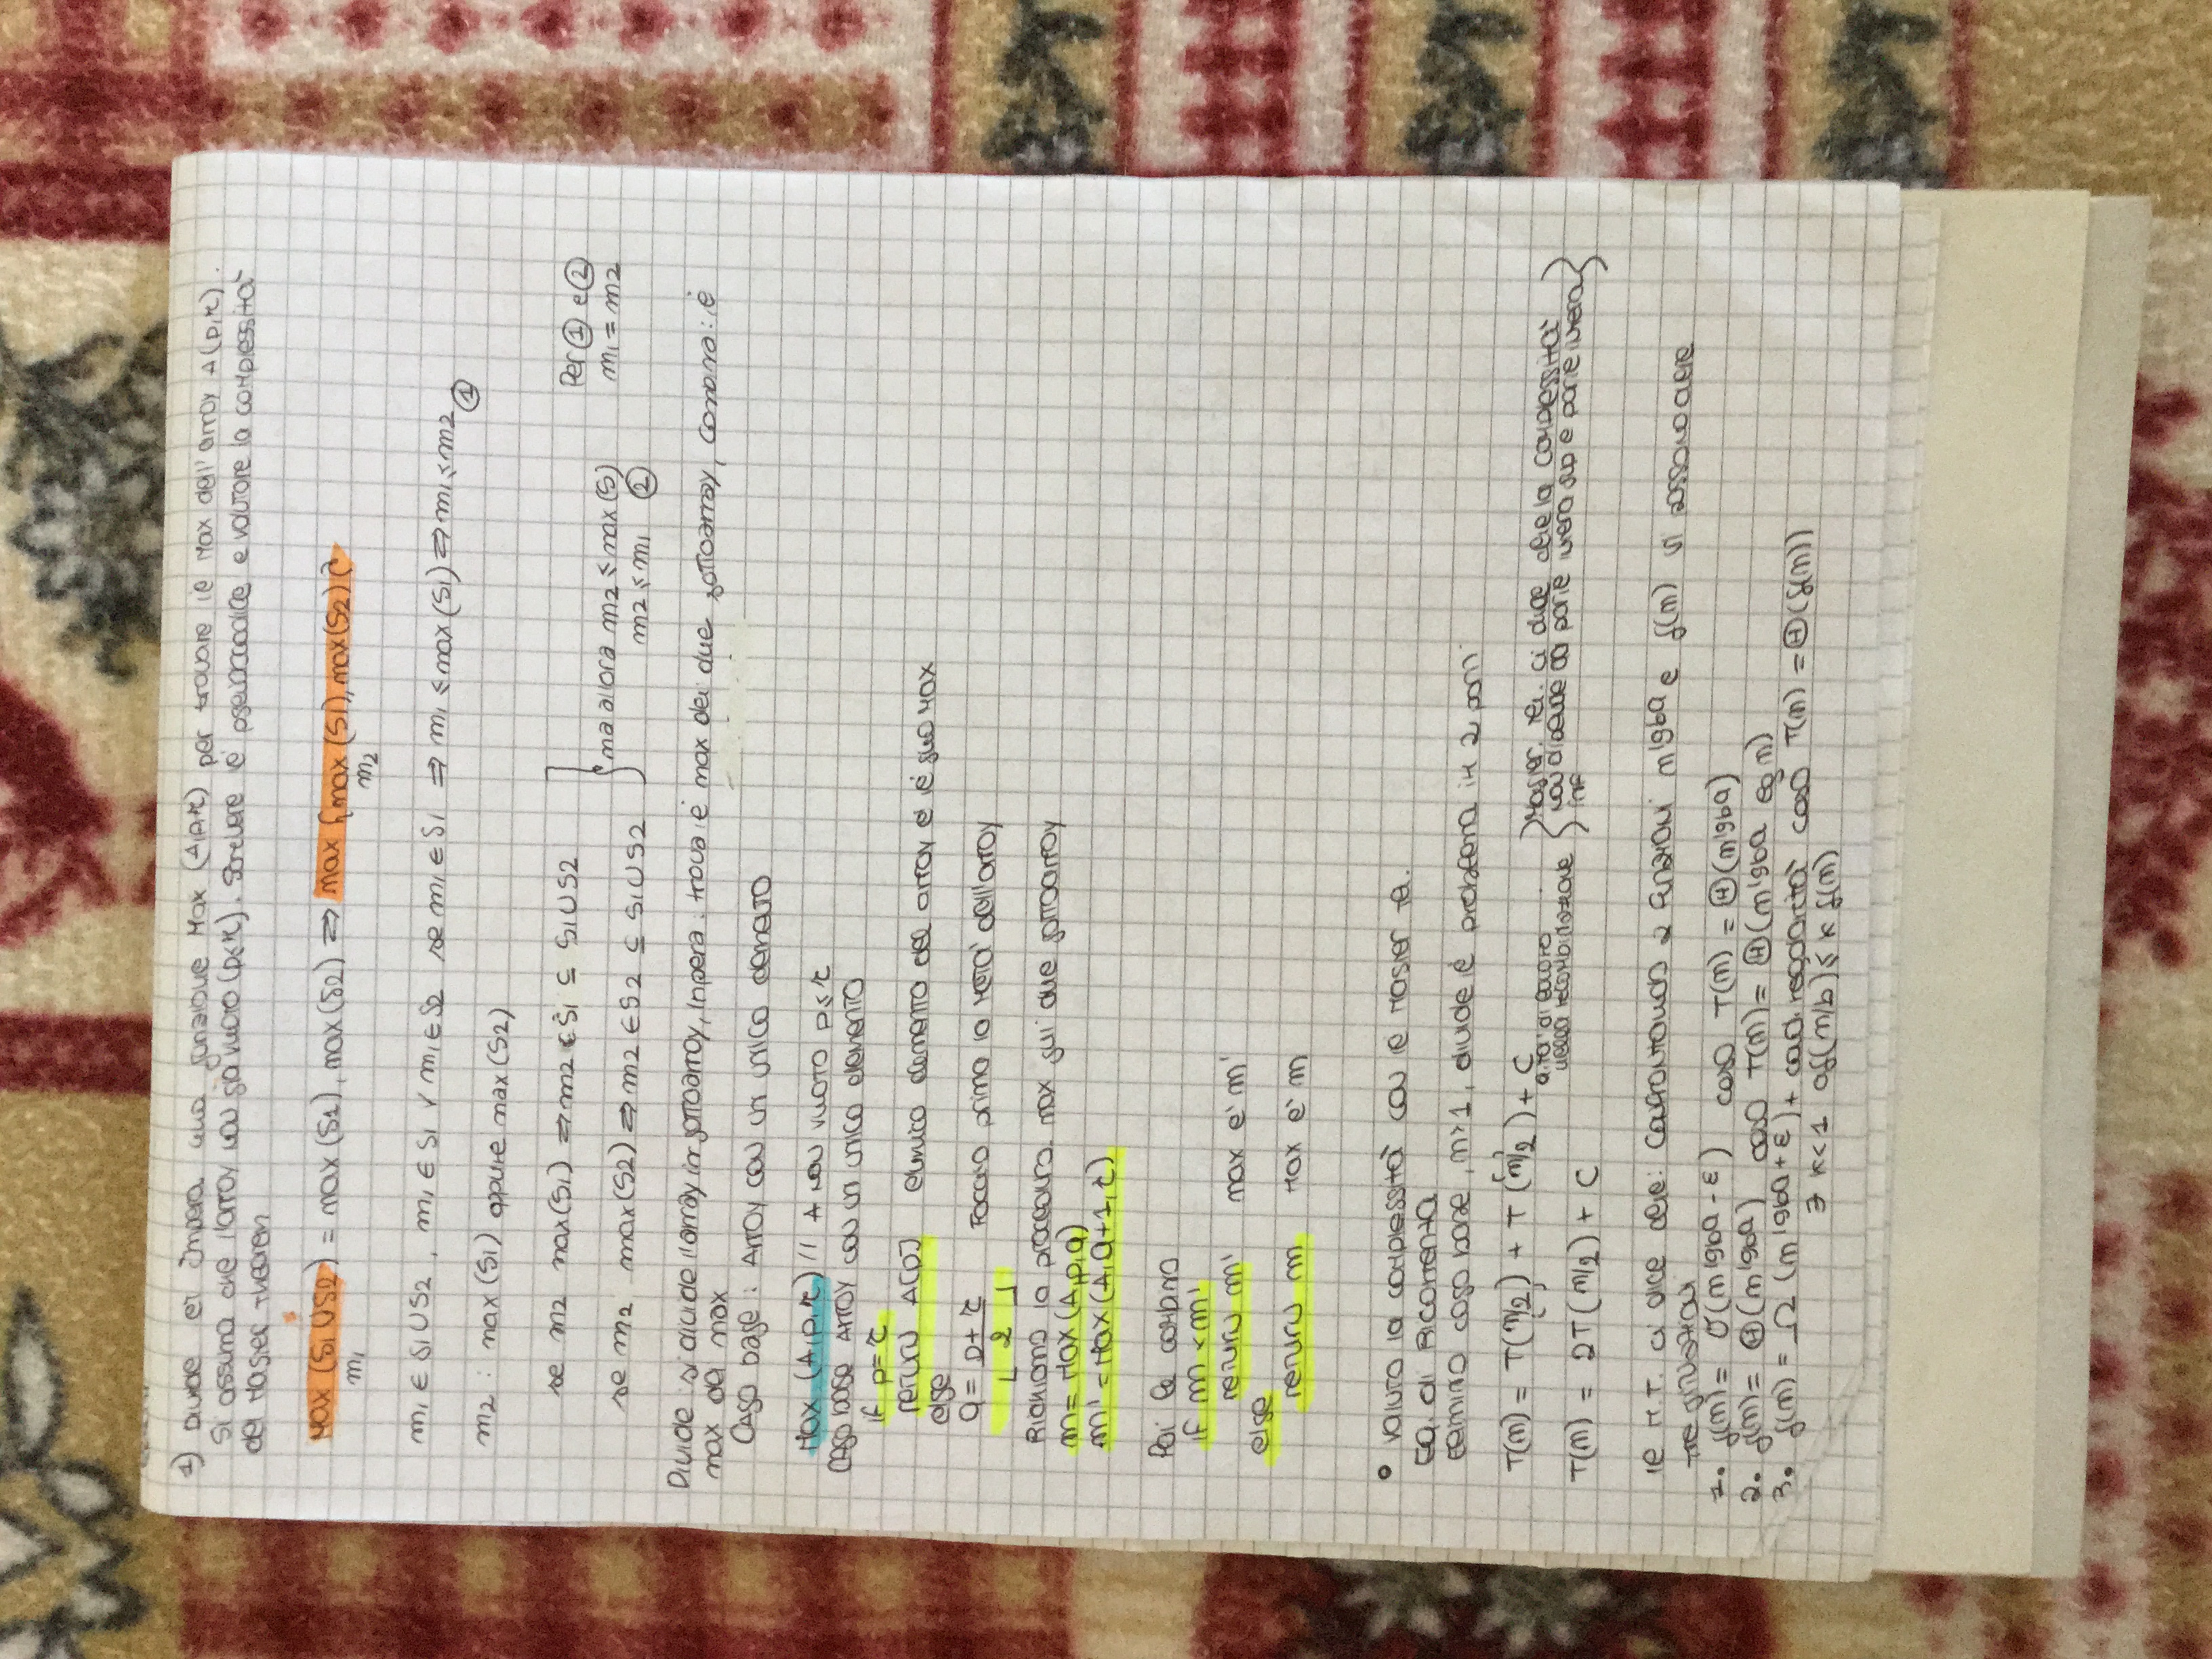 1) Divide et Impera una funzione Max (A,p,r) per trovare il Max dell'array A(p,r).
Si assuma che l'array non sia vuoto (p≤r). Scrivere il pseudocodice e valutare la complessità
del Master Theorem
Max (S1 ∪ S2) = max (S1), max (S2) => max {max (S1), max(S2)}
m1 m2
m1 ∈ S1 ∪ S2, m1 ∈ S1 ∨ m1 ∈ S2 se m1 ∈ S1 => m1 ≤ max (S1) => m1 ≤ m2 ①
m2 : max (S1) oppure max (S2)
se m2 max (S1) => m2 ∈ S1 ⊆ S1 ∪ S2
se m2 max (S2) => m2 ∈ S2 ⊆ S1 ∪ S2
ma allora m2 ≤ max (S)
m2 ≤ m1 ②
Per ① e ②
m1 = m2
Divide: si divide l'array in sottoarray, Inpera: trova il max dei due sottoarray, combina: il
max dei max
Caso base: Array con un unico elemento
Max (A,p,r) // A non vuoto p≤r
Caso base Array con un unico elemento
if p=r
return A[p] l'unico elemento del array è il suo Max
else
q = ⌊p+r / 2⌋ Faccio prima la metà dell'array
Richiamo la procedura max sui due sottoarray
m = Max (A,p,q)
m' = Max (A,q+1,r)
Poi le combino
if m < m'
return m' max e' m'
else
return m Max e' m
• Valuto la complessità con il Master te.
Eq. di Ricorrenza
Elimino caso base, n>1, divide il problema in 2 parti
T(n) = T(⌊n/2⌋) + T(⌈n/2⌉) + C
q.tà di lavoro
nella ricombinazione
T(n) = 2T (n/2) + C
Master. te. ci dice che la complessità
non dipende da parte intera sup e parte intera
inf
il M.T. ci dice che: Confrontando 2 funzioni n^lgba e f(n) si possono avere
tre situazioni
1. f(n) = O(n^lgba - ε) caso T(n) = Θ(n^lgba)
2. f(n) = Θ(n^lgba) caso T(n) = Θ(n^lgba lg n)
3. f(n) = Ω (n^lgba + ε) + cond. regolarità caso T(n) = Θ(f(n))
∃ k<1 af(n/b) ≤ k f(n)